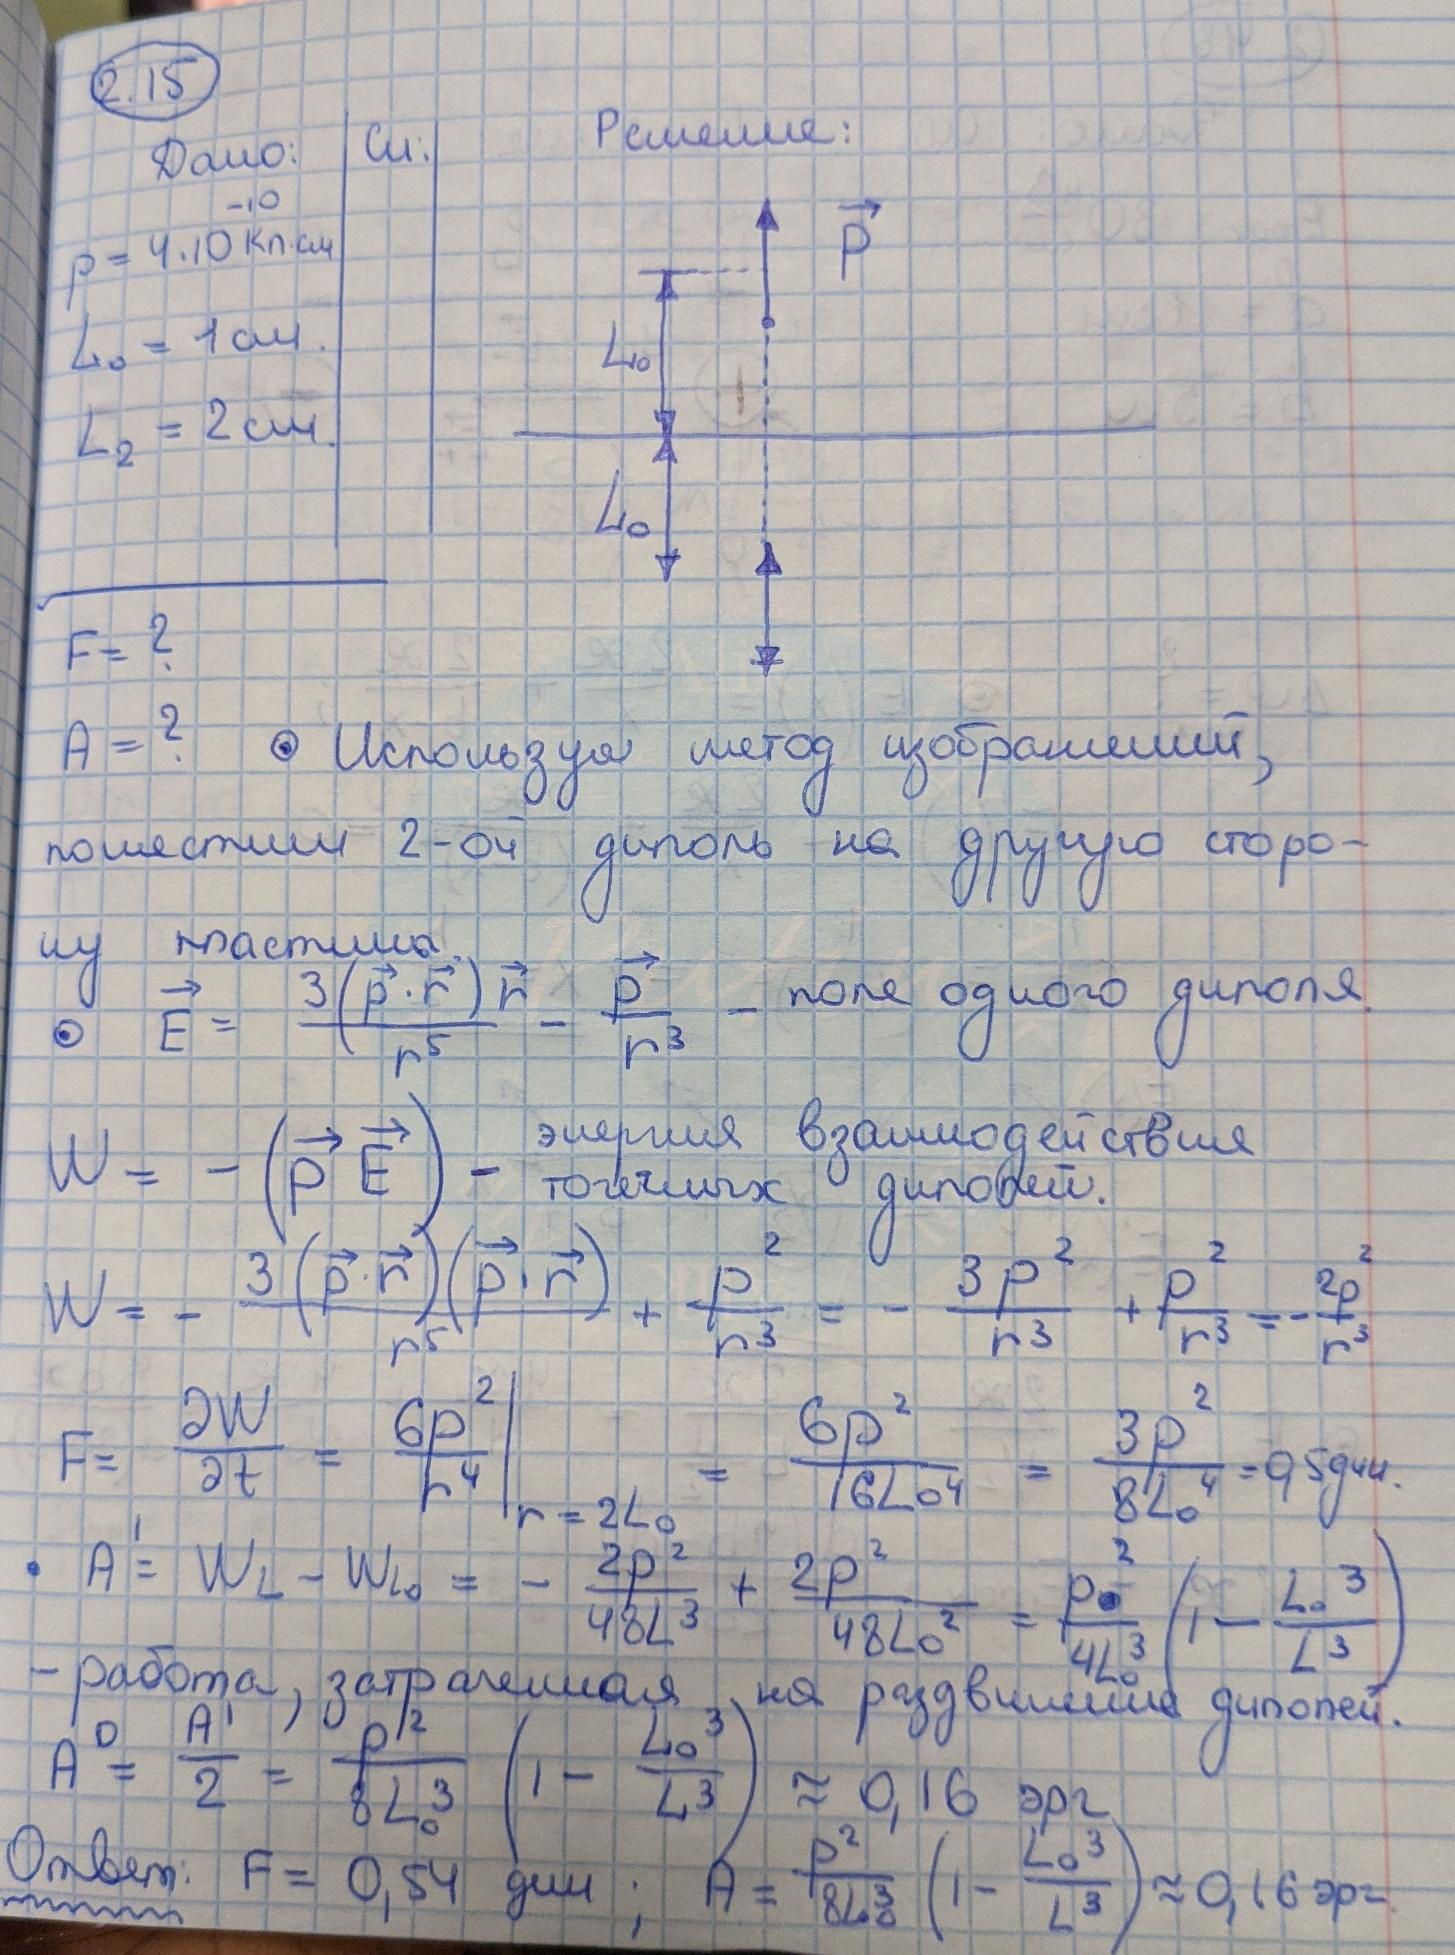 2.15
Дано:
Си:
Решение:
p = 4·10⁻¹⁰ Кл·см
L₀ = 1 см.
L₂ = 2 см.
p⃗
L₀
L₀
F = ?
A = ?
• Используя метод изображений,
поместим 2-ой диполь на другую сторо-
ну пластины.
• E⃗ = 3(p⃗·r⃗)r⃗ / r⁵ - p⃗ / r³ - поле одного диполя.
W = -(p⃗ E⃗) - энергия взаимодействия
точечных диполей.
W = - 3(p⃗·r⃗)(p⃗·r⃗) / r⁵ + p² / r³ = - 3p² / r³ + p² / r³ = - 2p² / r³
F = ∂W / ∂t = 6p² / r⁴ |r = 2L₀ = 6p² / 16L₀⁴ = 3p² / 8L₀⁴ = 0,5 дин.
• A' = W_L - W_L₀ = - 2p² / 48L³ + 2p² / 48L₀² = p² / 4L₀³ (1 - L₀³ / L³)
- работа, затраченная на раздвижение диполей.
A = A' / 2 = p² / 8L₀³ (1 - L₀³ / L³) ≈ 0,16 эрг
Ответ: F = 0,54 дин ; A = p² / 8L₀³ (1 - L₀³ / L³) ≈ 0,16 эрг